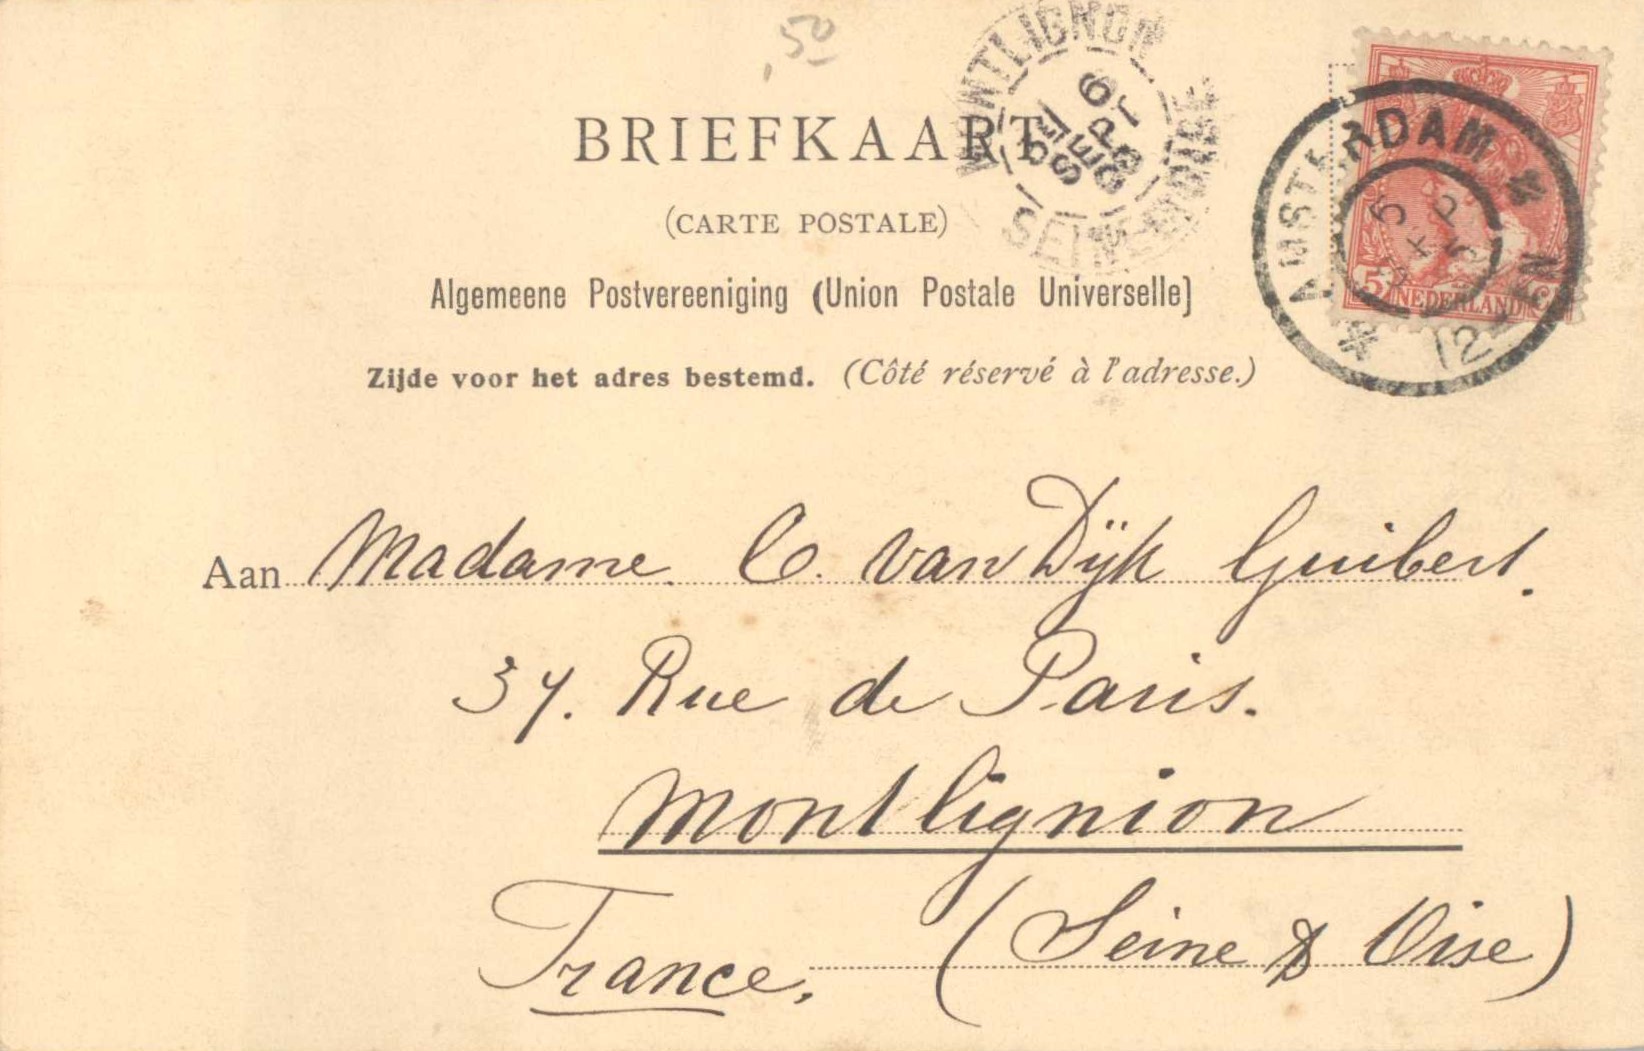 ,50
MONTLIGNON
6
SEPT
SEINE-ET-OISE
AMSTERDAM
5 NEDERLAND
12
BRIEFKAART
(CARTE POSTALE)
Algemeene Postvereeniging (Union Postale Universelle)
Zijde voor het adres bestemd. (Côté réservé à l'adresse.)
Aan Madame C. van Dÿk Guibert.
37. Rue de Paris.
Montlignion
France, (Seine & Oise)